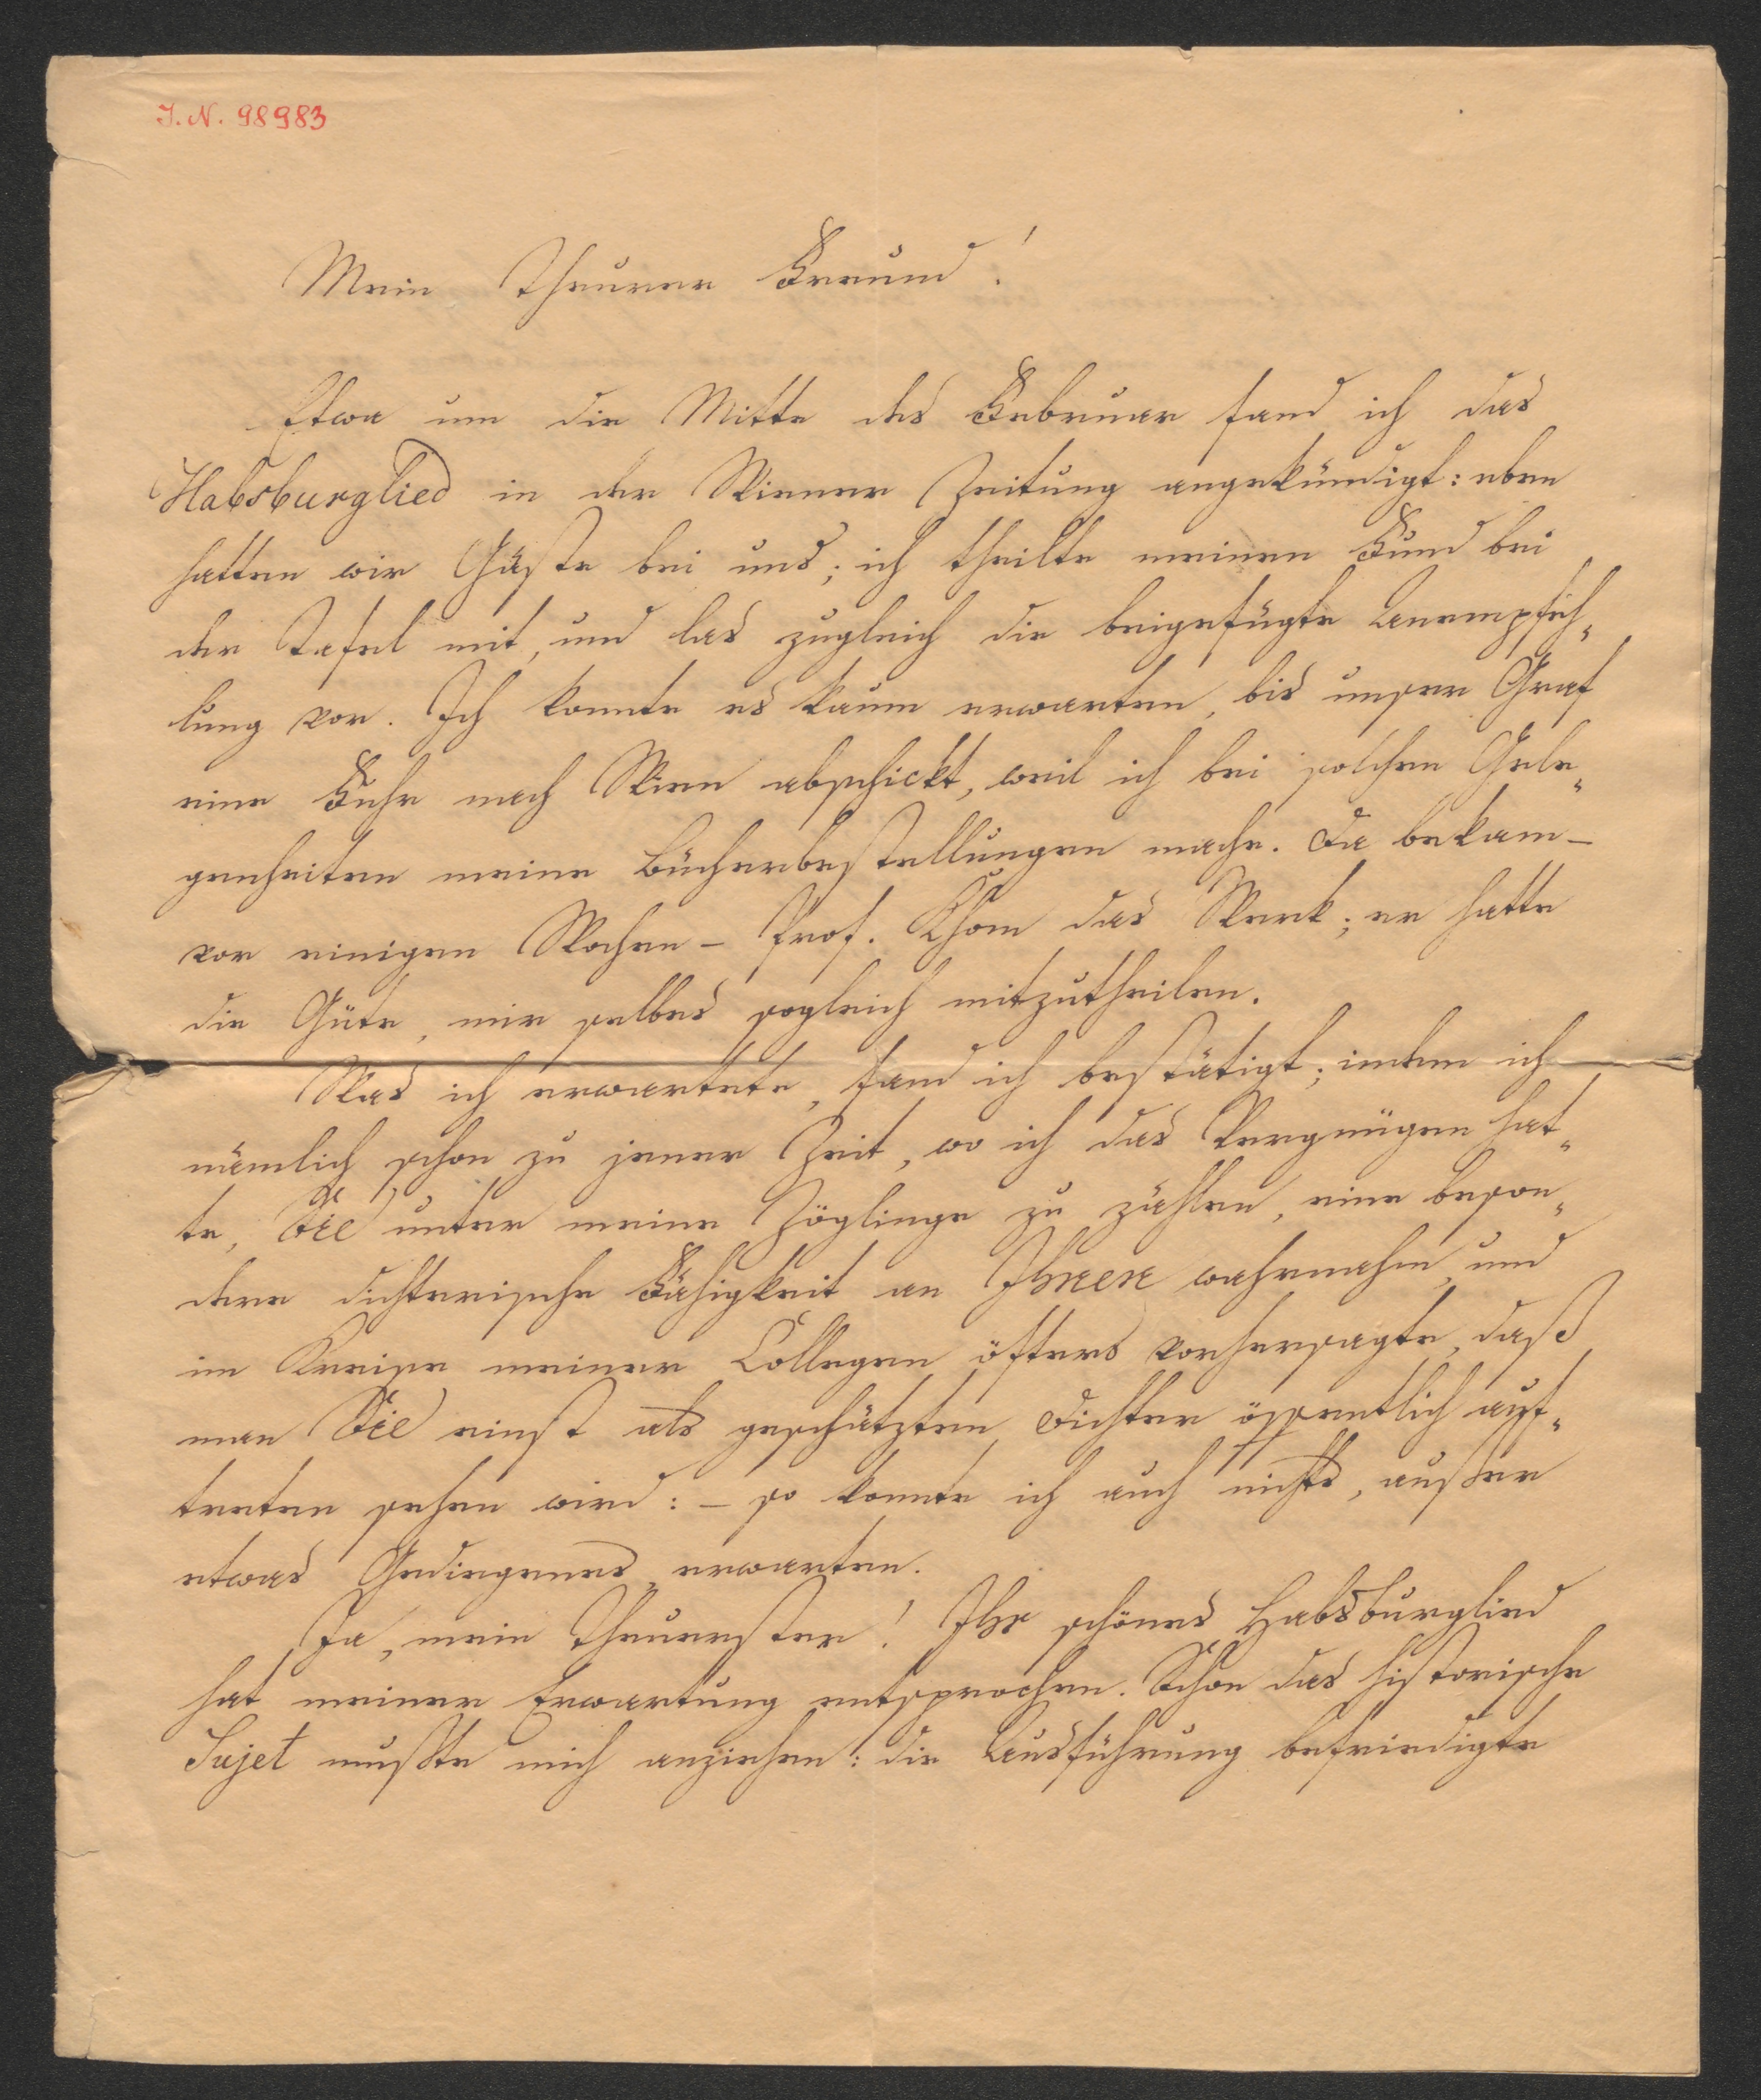 I. N. 98983
Mein Theurer Freund!
Etwa um die Mitte des Februar fand ich das
Habsburglied in der Wiener Zeitung angekündigt: eben
hatten wir Gäste bei uns; ich theilte meinen Fund bei
der Tafel mit, und las zugleich die beigefügte Anempfeh„
lung vor. Ich konnte es kaum erwarten, bis unser Graf
eine Fuhr nach Wien abschickt, weil ich bei solchen Gele„
genheiten meine Bücherbestellungen mache. Da bekam –
vor einigen Wochen – Prof. das Werk; er hatte
die Güte, mir selbes sogleich mitzutheilen.
Was ich erwartete, fand ich bestätigt; indem ich
nämlich schon zu jener Zeit, wo ich das Vergnügen hat„
te, Sie unter meine Zöglinge zu zählen, eine beson„
dere dichterische Fähigkeit an Ihnen wahrnahm, und
im Kreise meiner Collegen öfters vorhersagte, daß
man Sie einst als geschätzten Dichter öffentlich auf„
treten sehen wird: – so konnte ich auch nichts, außer
etwas Gediegenes, erwarten.
Ja, mein Theuerster! Ihr schönes Habsburglied
hat meiner Erwartung entsprochen. Schon das historische
Sujet mußte mich anziehen: die Ausführung befriedigte